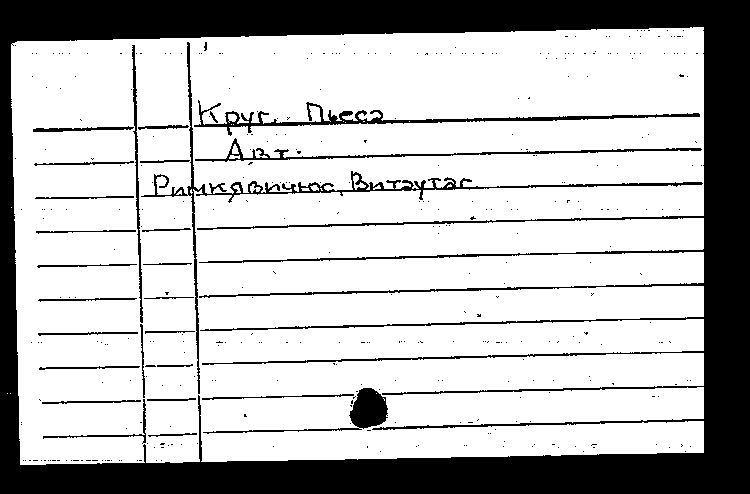 Круг. Пьеса
Авт.
Римкявичюс, Витаутас